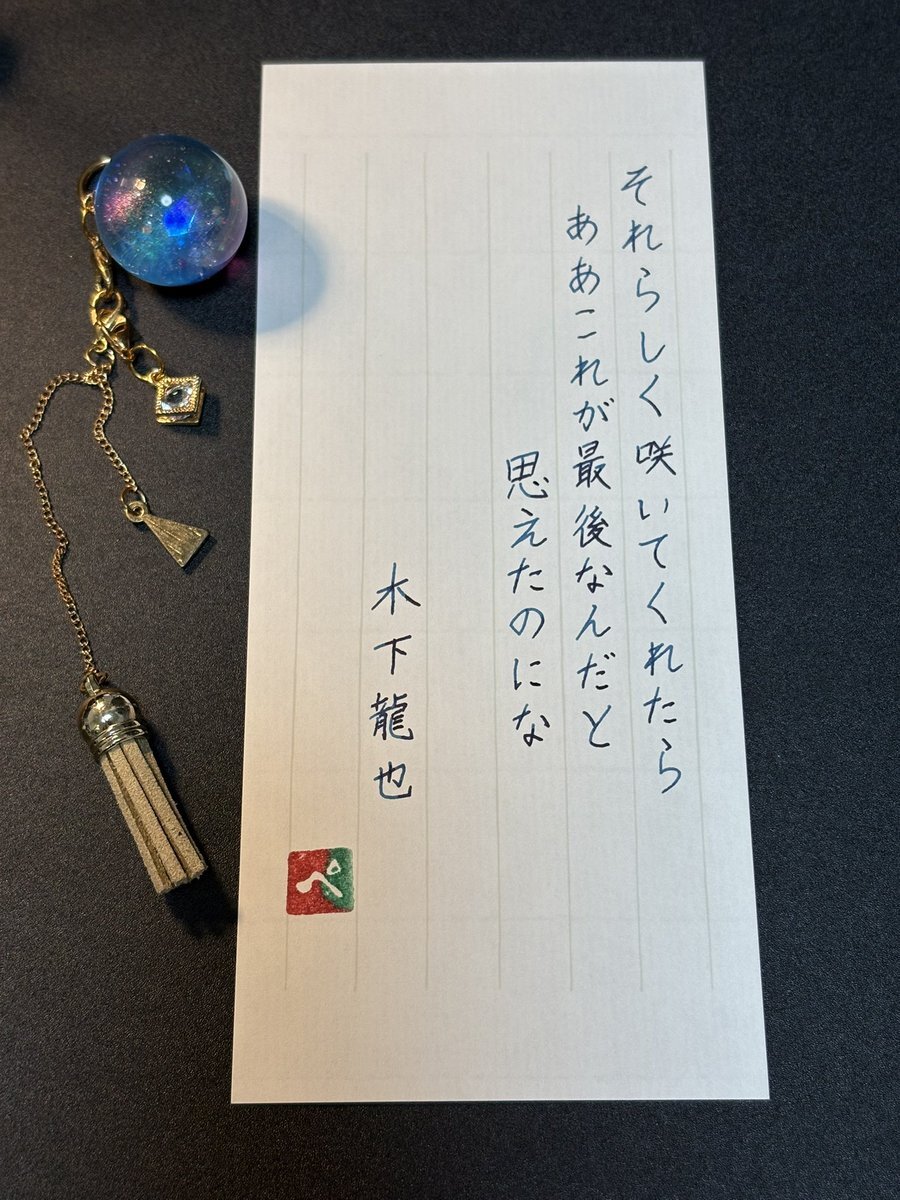 それらしく咲いてくれたら
ああこれが最後なんだと
思えたのにな
木下龍也
ぺ